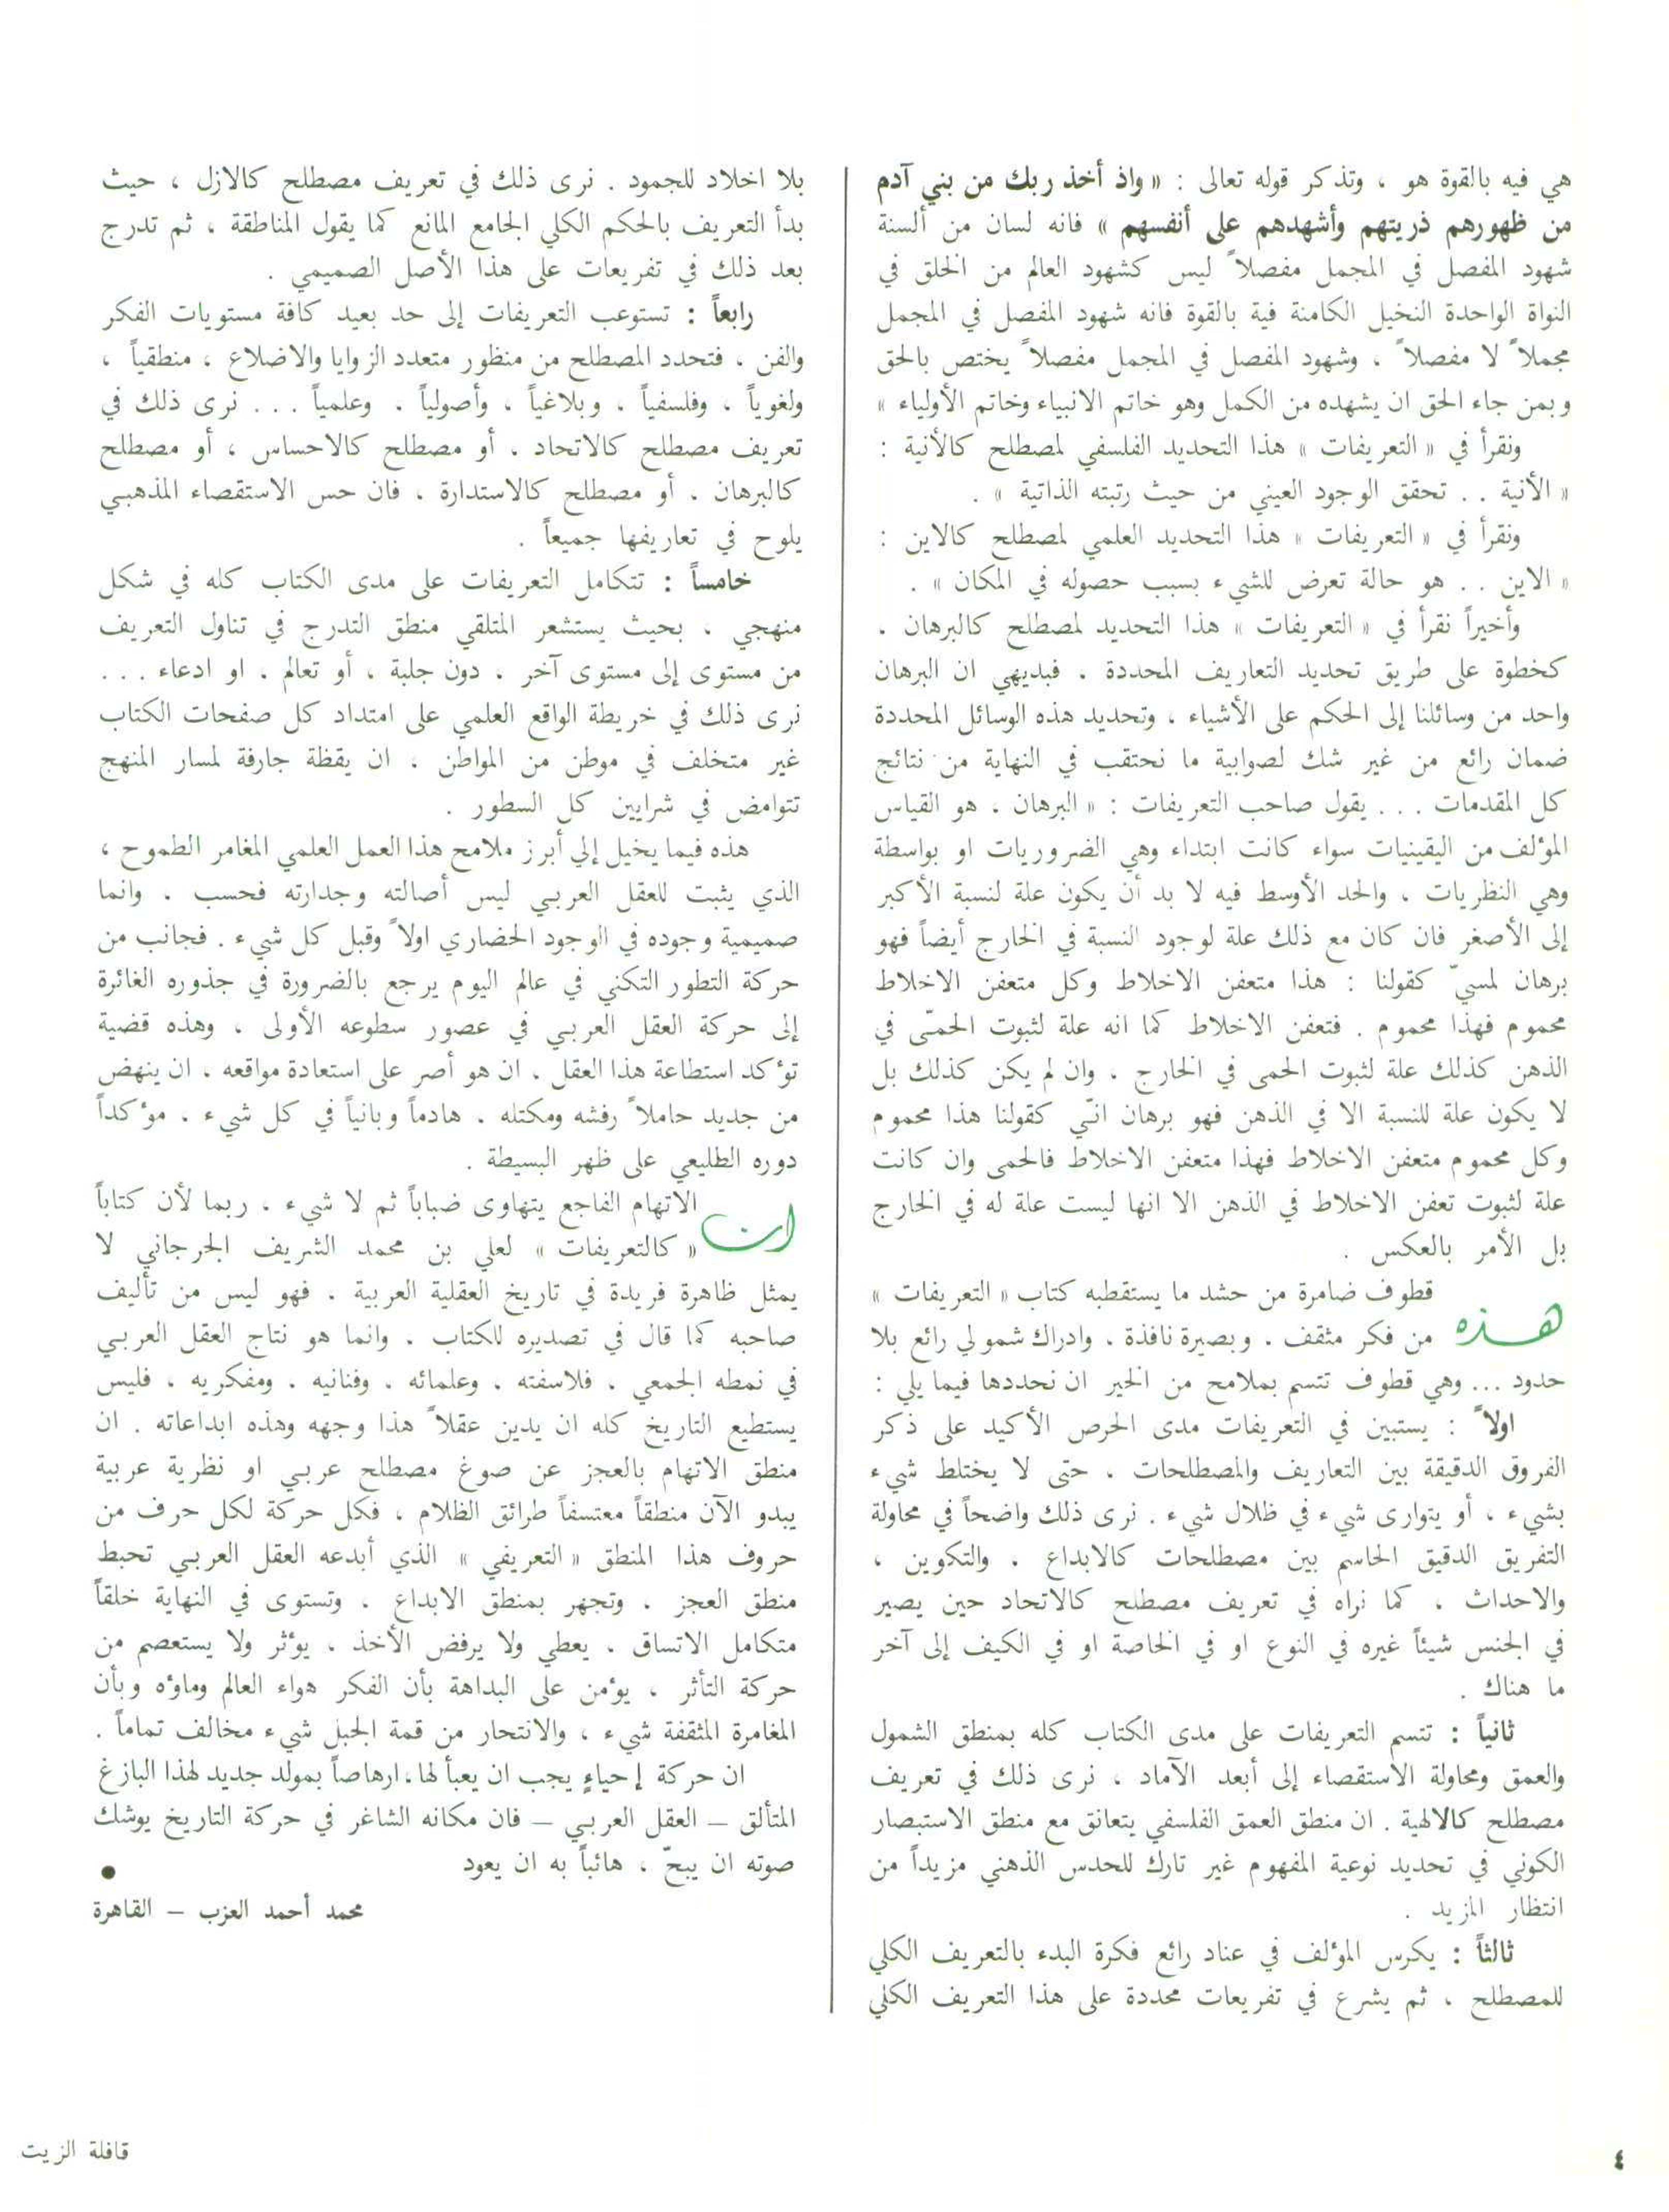 هي فيه بالقوة هو ، وتذكر قوله تعالى : « واذ أخذ ربك من بني آدم
من ظهورهم ذريتهم وأشهدهم على أنفسهم » فانه لسان من ألسنة
شهود المفصل في المجمل مفصلاً ليس كشهود العالم من الخلق في
النواة الواحدة النخيل الكامنة فية بالقوة فانه شهود المفصل في المجمل
مجملاً لا مفصلاً ، وشهود المفصل في المجمل مفصلاً يختص بالحق
وبمن جاء الحق ان يشهده من الكمل وهو خاتم الانبياء وخاتم الأولياء »
ونقرأ في « التعريفات » هذا التحديد الفلسفي لمصطلح كالأنية :
« الأنية . . تحقق الوجود العيني من حيث رتبته الذاتية » .
ونقرأ في « التعريفات » هذا التحديد العلمي لمصطلح كالاين :
« الاين . . هو حالة تعرض للشيء بسبب حصوله في المكان » .
وأخيراً نقرأ في « التعريفات » هذا التحديد لمصطلح كالبرهان .
كخطوة على طريق تحديد التعاريف المحددة . فبديهي ان البرهان
واحد من وسائلنا إلى الحكم على الأشياء ، وتحديد هذه الوسائل المحددة
ضمان رائع من غير شك لصوابية ما نحتقب في النهاية من نتائج
كل المقدمات . . . يقول صاحب التعريفات : « البرهان ، هو القياس
المؤلف من اليقينيات سواء كانت ابتداء وهي الضروريات او بواسطة
وهي النظريات ، والحد الأوسط فيه لا بد أن يكون علة لنسبة الأكبر
إلى الأصغر فان كان مع ذلك علة لوجود النسبة في الخارج أيضاً فهو
برهان لمسيّ كقولنا : هذا متعفن الاخلاط وكل متعفن الاخلاط
محموم فهذا محموم . فتعفن الاخلاط كما انه علة لثبوت الحمّى في
الذهن كذلك علة لثبوت الحمى في الخارج ، وان لم يكن كذلك بل
لا يكون علة للنسبة الا في الذهن فهو برهان انّي كقولنا هذا محموم
وكل محموم متعفن الاخلاط فهذا متعفن الاخلاط فالحمى وان كانت
علة لثبوت تعفن الاخلاط في الذهن الا انها ليست علة له في الخارج
بل الأمر بالعكس .
هذه قطوف ضامرة من حشد ما يستقطبه كتاب « التعريفات »
من فكر مثقف . وبصيرة نافذة . وادراك شمولي رائع بلا
حدود ... وهي قطوف تتسم بملامح من الخير ان نحددها فيما يلي :
اولاً : يستبين في التعريفات مدى الحرص الأكيد على ذكر
الفروق الدقيقة بين التعاريف والمصطلحات ، حتى لا يختلط شيء
بشيء ، أو يتوارى شيء في ظلال شيء . نرى ذلك واضحاً في محاولة
التفريق الدقيق الحاسم بين مصطلحات كالابداع . والتكوين ،
والاحداث . كما نراه في تعريف مصطلح كالاتحاد حين يصير
في الجنس شيئاً غيره في النوع او في الخاصة او في الكيف إلى آخر
ما هناك .
ثانياً : تتسم التعريفات على مدى الكتاب كله بمنطق الشمول
والعمق ومحاولة الاستقصاء إلى أبعد الآماد ، نرى ذلك في تعريف
مصطلح كالالهية . ان منطق العمق الفلسفي يتعانق مع منطق الاستبصار
الكوني في تحديد نوعية المفهوم غير تارك للحدس الذهني مزيداً من
انتظار المزيد .
ثالثاً : يكرس المؤلف في عناد رائع فكرة البدء بالتعريف الكلي
للمصطلح ، ثم يشرع في تفريعات محددة على هذا التعريف الكلي
بلا اخلاد للجمود . نرى ذلك في تعريف مصطلح كالازل ، حيث
بدأ التعريف بالحكم الكلي الجامع المانع كما يقول المناطقة ، ثم تدرج
بعد ذلك في تفريعات على هذا الأصل الصميمي .
رابعاً : تستوعب التعريفات إلى حد بعيد كافة مستويات الفكر
والفن ، فتحدد المصطلح من منظور متعدد الزوايا والاضلاع ، منطقياً ،
ولغوياً ، وفلسفياً ، وبلاغياً ، وأصولياً . وعلمياً . . . نرى ذلك في
تعريف مصطلح كالاتحاد . أو مصطلح كالاحساس ، أو مصطلح
كالبرهان . أو مصطلح كالاستدارة ، فان حس الاستقصاء المذهبي
يلوح في تعاريفها جميعاً .
خامساً : تتكامل التعريفات على مدى الكتاب كله في شكل
منهجي ، بحيث يستشعر المتلقي منطق التدرج في تناول التعريف
من مستوى إلى مستوى آخر . دون جلبة ، أو تعالم . او ادعاء . . .
نرى ذلك في خريطة الواقع العلمي على امتداد كل صفحات الكتاب
غير متخلف في موطن من المواطن ، ان يقظة جارفة لمسار المنهج
تتوامض في شرايين كل السطور .
هذه فيما يخيل إلي أبرز ملامح هذا العمل العلمي المغامر الطموح ،
الذي يثبت للعقل العربي ليس أصالته وجدارته فحسب . وانما
صميمية وجوده في الوجود الحضاري اولاً وقبل كل شيء . فجانب من
حركة التطور التكني في عالم اليوم يرجع بالضرورة في جذوره الغائرة
إلى حركة العقل العربي في عصور سطوعه الأولى ، وهذه قضية
تؤكد استطاعة هذا العقل . ان هو أصر على استعادة مواقعه . ان ينهض
من جديد حاملاً رفشه ومكتله . هادماً وبانياً في كل شيء . مؤكداً
دوره الطليعي على ظهر البسيطة .
ان الاتهام الفاجع يتهاوى ضباباً ثم لا شيء . ربما لأن كتاباً
« كالتعريفات » لعلي بن محمد الشريف الجرجاني لا
يمثل ظاهرة فريدة في تاريخ العقلية العربية . فهو ليس من تأليف
صاحبه كما قال في تصديره للكتاب . وانما هو نتاج العقل العربي
في نمطه الجمعي . فلاسفته . وعلمائه . وفنانيه . ومفكريه ، فليس
يستطيع التاريخ كله ان يدين عقلاً هذا وجهه وهذه ابداعاته . ان
منطق الاتهام بالعجز عن صوغ مصطلح عربي او نظرية عربية
يبدو الآن منطقاً معتسفاً طرائق الظلام ، فكل حركة لكل حرف من
حروف هذا المنطق « التعريفي » الذي أبدعه العقل العربي تحبط
منطق العجز . وتجهر بمنطق الابداع . وتستوى في النهاية خلقاً
متكامل الاتساق . يعطي ولا يرفض الأخذ . يؤثر ولا يستعصم من
حركة التأثر ، يؤمن على البداهة بأن الفكر هواء العالم وماؤه وبأن
المغامرة المثقفة شيء ، والانتحار من قمة الجبل شيء مخالف تماماً .
ان حركة إحياءٍ يجب ان يعبأ لها، ارهاصاً بمولد جديد لهذا البازغ
المتألق – العقل العربي – فان مكانه الشاغر في حركة التاريخ يوشك
صوته ان يبحّ ، هائباً به ان يعود ●
محمد أحمد العزب – القاهرة
٤
قافلة الزيت